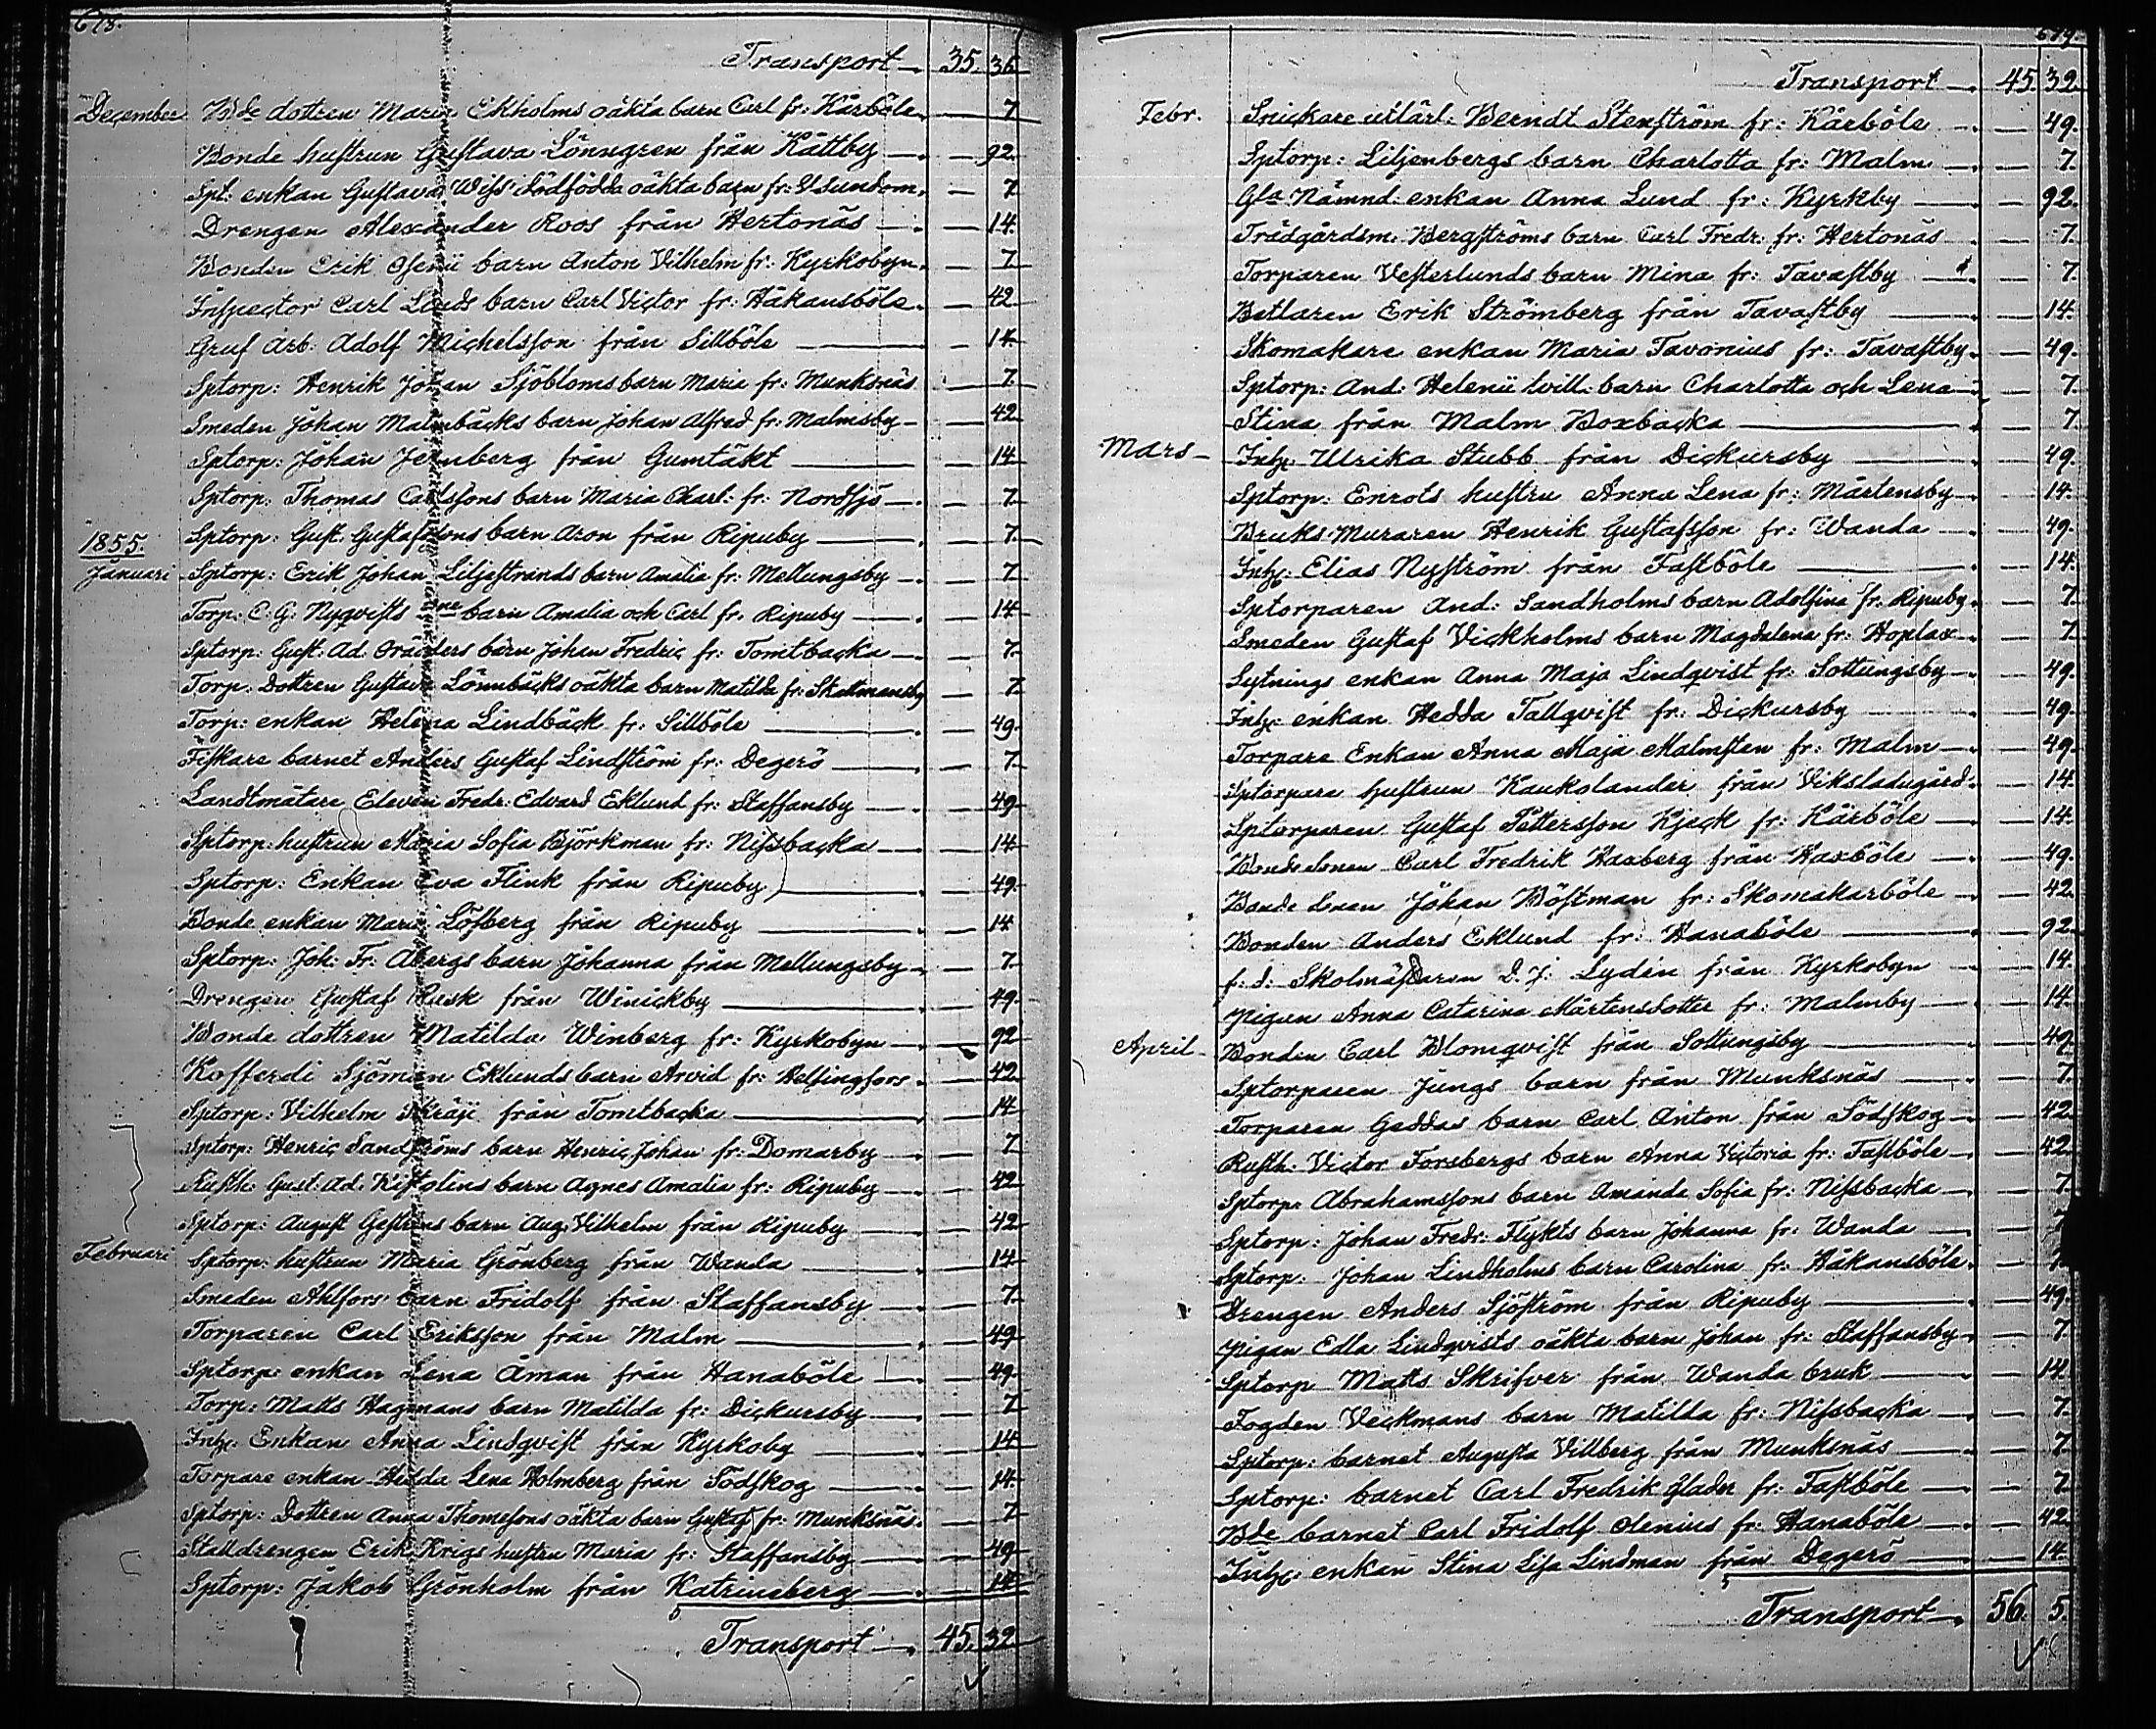 678.
Transport 35. 36
December Bde dottren Maria Ekholms oäkta barn Carl fr: Kårböle 7
Bonde hustrun Gustava Lönngren från Kåttby 92
Spt: enkan Gustava Wiss dödfödda oäkta barn fr: V Sundom 7
Drengen Alexander Roos från Hertonäs 14
Bonden Erik Osenii barn Anton Vilhelm fr: Kyrkobyn 7
Inspector Carl Lunds barn Carl Victor fr: Håkansböle 42
Gruf Arb. Adolf Michelsson från Sillböle 14
Sptorp: Henrik Johan Sjöbloms barn Maria fr: Munksnäs 7
Smeden Johan Malmbäcks barn Johan Alfred fr: Malmsby 42
Sptorp: Johan Jernberg från Gumtäkt 14
Sptorp: Thomas Carlssons barn Maria Charl: fr: Nordsjö 7
Sptorp: Gust. Gustafssons barn Aron från Ripuby 7
1855.
Januari Sptorp: Erik Johan Liljestrands barn Amalia fr: Mellungsby 7
Torp: C. G. Nyqvists 2ne barn Amalia och Carl fr. Ripuby 14
Sptorp: Gust. Ad. barn Johan Fredric fr: Tomtbacka 7
Torp: Dottren Gustava Lönnbäcks oäkta barn Matilda fr: Skattmansby 7
Torp: enkan Helena Lindbäck fr: Sillböle 49
Fiskare barnet Anders Gustaf Lindström fr: Degerö 7
Landtmätare Eleven Fredr: Edvard Eklund fr: Staffansby 49
Sptorp: hustrun Maria Sofia Björkman fr: Nissbacka 14
Sptorp: Enkan Eva Flink från Ripuby 49
Bonde enkan Maria Löfberg från Ripuby 14
Sptorp: Joh: Fr: Åbergs barn Johanna från Mellungsby 7
Drengen Gustaf Rusk från Winickby 49
Bonde dottren Matilda Winberg fr: Kyrkobyn 92
Kofferdi Sjöman Eklunds barn Arvid fr: Helsingfors 42
Sptorp: Vilhelm från Tomtbacka 14
Sptorp: Henric Sandströms barn Henric Johan fr: Domarby 7
Rusth: Gust: Ad: Kistolins barn Agnes Amalia fr: Ripuby 42
Sptorp: August Gestrens barn Aug: Vilhelm från Ripuby 42
Februari Sptorp: hustrun Maria Grönberg från Wanda 14
Smeden Ahlfors barn Fridolf från Staffansby 7
Torparen Carl Eriksson från Malm 49
Sptorp: enkan Lena Åman från Hanaböle 49
Torp: Matts Hagmans barn Matilda fr: Dickursby 7
Inh: Enkan Anna Lindqvist från Kyrkoby 14
Torpare enkan Hedda Lena Holmberg från Sodskog 14
Sptorp: Dottren Anna Thomesons oäkta barn Gustaf fr: Munksnäs 7
Stalldrengen Erik Krigs hustru Maria fr: Staffansby 49
Sptorp: Jakob Grönholm från Katrinsberg 14
Transport 45. 39
679.
Transport 45. 39.
Febr. Snickare utlärl: Berndt Stenström fr: Kårböle 49.
Sptorp: Liljenbergs barn Charlotta fr: Malm 7.
Gla Nämnd: enkan Anna Lund fr: Kyrkby 92.
Trädgårdsm: Bergströms barn Carl Fredr: fr: Hertonäs 7.
Torparen Vesterlunds barn Mina fr: Tavastby 7.
Betlaren Erik Strömberg från Tavastby 14.
Skomakare enkan Maria Tavonius fr: Tavastby 49.
Sptorp: And: Helenii tvill: barn Charlotta och Lena 7.
Stina från Malm Boxbacka 7.
Mars Inh: Ulrika Stubb från Dickursby 49.
Sptorp: Enrots hustru Anna Lena fr: Mårtensby 14.
Bruks Muraren Henrik Gustafsson fr: Wanda 49.
Inh: Elias Nyström från Fastböle 14.
Sptorparen And: Sandholms barn Adolfina fr: Ripuby 7
Smeden Gustaf Vickholms barn Magdalena fr: Hoplax 7
Lytnings enkan Anna Maja Lindqvist fr: Sottungsby 49.
Inh: enkan Hedda Tallqvist fr: Dickursby 49.
Torpare Enkan Anna Maja Malmsten fr: Malm 49.
Sptorpare hustrun Kaukolander från Viksladugård 14.
Sptorparen Gustaf Pettersson Kjeck fr: Kårböle 14.
Bonde sonen Carl Fredrik Haxberg från Haxböle 49.
Bonde sonen Johan Böstman fr: Skomakarböle 42.
Bonden Anders Eklund fr: Hanaböle 92.
f. d. Skolmästaren D. J. Lydén från Kyrkobyn 14.
Pigan Anna Catarina Mårtensdotter fr: Malmby 14.
April Bonden Carl Blomqvist från Sottungsby 49.
Sptorparen Jungs barn från Munksnäs 7
Torparen Geddas barn Carl Anton från Sodskog 42
Rusth: Victor Forsbergs barn Anna Victoria fr: Fastböle 42.
Sptorp: Abrahamssons barn Amanda Sofia fr: Nissbacka 7.
Sptorp: Johan Fredr: Flykts barn Johanna fr: Wanda 7
Sptorp: Johan Lindholms barn Carolina fr: Håkansböle 7
Drengen Anders Sjöström från Ripuby 49.
Pigan Edla Lindqvists oäkta barn Johan fr: Staffansby 7.
Sptorp Matts Skrifver från Wanda bruk 14.
Fogden Veckmans barn Matilda fr: Nissbacka 7.
Sptorp: barnet Augusta Villberg från Munksnäs 7
Sptorp: barnet Carl Fredrik Glader fr: Fastböle 7
Bde barnet Carl Fridolf Olenius fr: Hanaböle 42.
Inh: enkan Stina Lisa Lindman från Degerö 14.
Transport 56. 5.